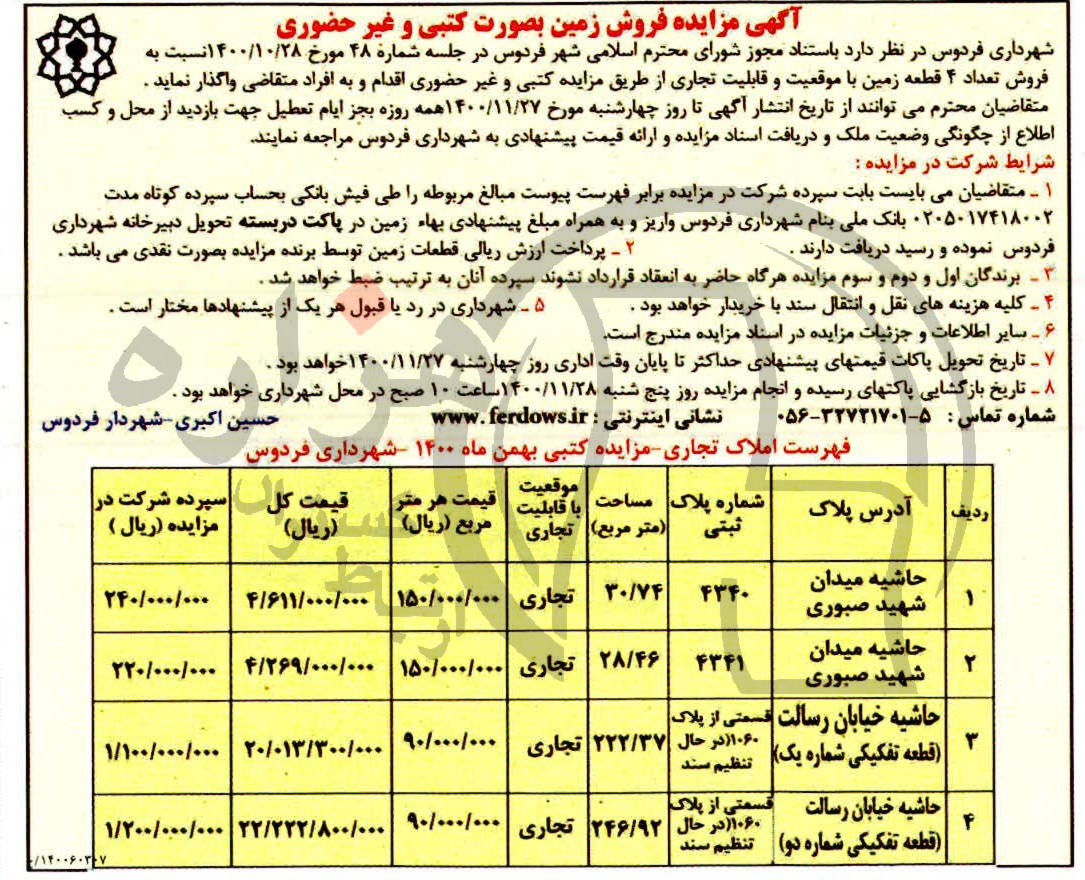 آگهی مزایده فروش زمین بصورت کتبی و غیر حضوری
شهرداری فردوس در نظر دارد باستناد مجوز شورای محترم اسلامی شهر فردوس در جلسه شماره ۴۸ مورخ ۱۴۰۰/۱۰/۲۸نسبت به
فروش تعداد ۴ قطعه زمین با موقعیت و قابلیت تجاری از طریق مزایده کتبی و غیر حضوری اقدام و به افراد متقاضی واگذار نماید .
متقاضیان محترم می توانند از تاریخ انتشار آگهی تا روز چهارشنبه مورخ ۱۴۰۰/۱۱/۲۷همه روزه بجز ایام تعطیل جهت بازدید از محل و کسب
اطلاع از چگونگی وضعیت ملک و دریافت اسناد مزایده و ارائه قیمت پیشنهادی به شهرداری فردوس مراجعه نمایند.
شرایط شرکت در مزایده :
۱ ـ متقاضیان می بایست بابت سپرده شرکت در مزایده برابر فهرست پیوست مبالغ مربوطه را طی فیش بانکی بحساب سپرده کوتاه مدت
۰۲۰۵۰۱۷۴۱۸۰۰۲ بانک ملی بنام شهرداری فردوس واریز و به همراه مبلغ پیشنهادی بهاء زمین در پاکت دربسته تحویل دبیرخانه شهرداری
فردوس نموده و رسید دریافت دارند . ۲ ـ پرداخت ارزش ریالی قطعات زمین توسط برنده مزایده بصورت نقدی می باشد .
۳ ـ برندگان اول و دوم و سوم مزایده هرگاه حاضر به انعقاد قرارداد نشوند سپرده آنان به ترتیب ضبط خواهد شد .
۴ ـ کلیه هزینه های نقل و انتقال سند با خریدار خواهد بود . ۵ ـ شهرداری در رد یا قبول هر یک از پیشنهادها مختار است .
۶ ـ سایر اطلاعات و جزئیات مزایده در اسناد مزایده مندرج است.
۷ ـ تاریخ تحویل پاکات قیمتهای پیشنهادی حداکثر تا پایان وقت اداری روز چهارشنبه ۱۴۰۰/۱۱/۲۷خواهد بود .
۸ ـ تاریخ بازگشایی پاکتهای رسیده و انجام مزایده روز پنج شنبه ۱۴۰۰/۱۱/۲۸ساعت ۱۰ صبح در محل شهرداری خواهد بود .
شماره تماس : ۵-۰۵۶-۳۲۷۲۱۷۰۱ نشانی اینترنتی : www.ferdows.ir حسین اکبری-شهردار فردوس
فهرست املاک تجاری-مزایده کتبی بهمن ماه ۱۴۰۰ -شهرداری فردوس
ردیف آدرس پلاک شماره پلاک ثبتی مساحت (متر مربع) موقعیت با قابلیت تجاری قیمت هر متر مربع (ریال) قیمت کل (ریال) سپرده شرکت در مزایده (ریال )
۱ حاشیه میدان شهید صبوری ۴۳۴۰ ۳۰/۷۴ تجاری ۱۵۰/۰۰۰/۰۰۰ ۴/۶۱۱/۰۰۰/۰۰۰ ۲۴۰/۰۰۰/۰۰۰
۲ حاشیه میدان شهید صبوری ۴۳۴۱ ۲۸/۴۶ تجاری ۱۵۰/۰۰۰/۰۰۰ ۴/۲۶۹/۰۰۰/۰۰۰ ۲۲۰/۰۰۰/۰۰۰
۳ حاشیه خیابان رسالت (قطعه تفکیکی شماره یک) قسمتی از پلاک ۱۰۶۰(در حال تنظیم سند ۲۲۲/۳۷ تجاری ۹۰/۰۰۰/۰۰۰ ۲۰/۰۱۳/۳۰۰/۰۰۰ ۱/۱۰۰/۰۰۰/۰۰۰
۴ حاشیه خیابان رسالت (قطعه تفکیکی شماره دو) قسمتی از پلاک ۱۰۶۰(در حال تنظیم سند ۲۴۶/۹۲ تجاری ۹۰/۰۰۰/۰۰۰ ۲۲/۲۲۲/۸۰۰/۰۰۰ ۱/۲۰۰/۰۰۰/۰۰۰
۱۴۰۰۶۰۳۰۷/
هزاره